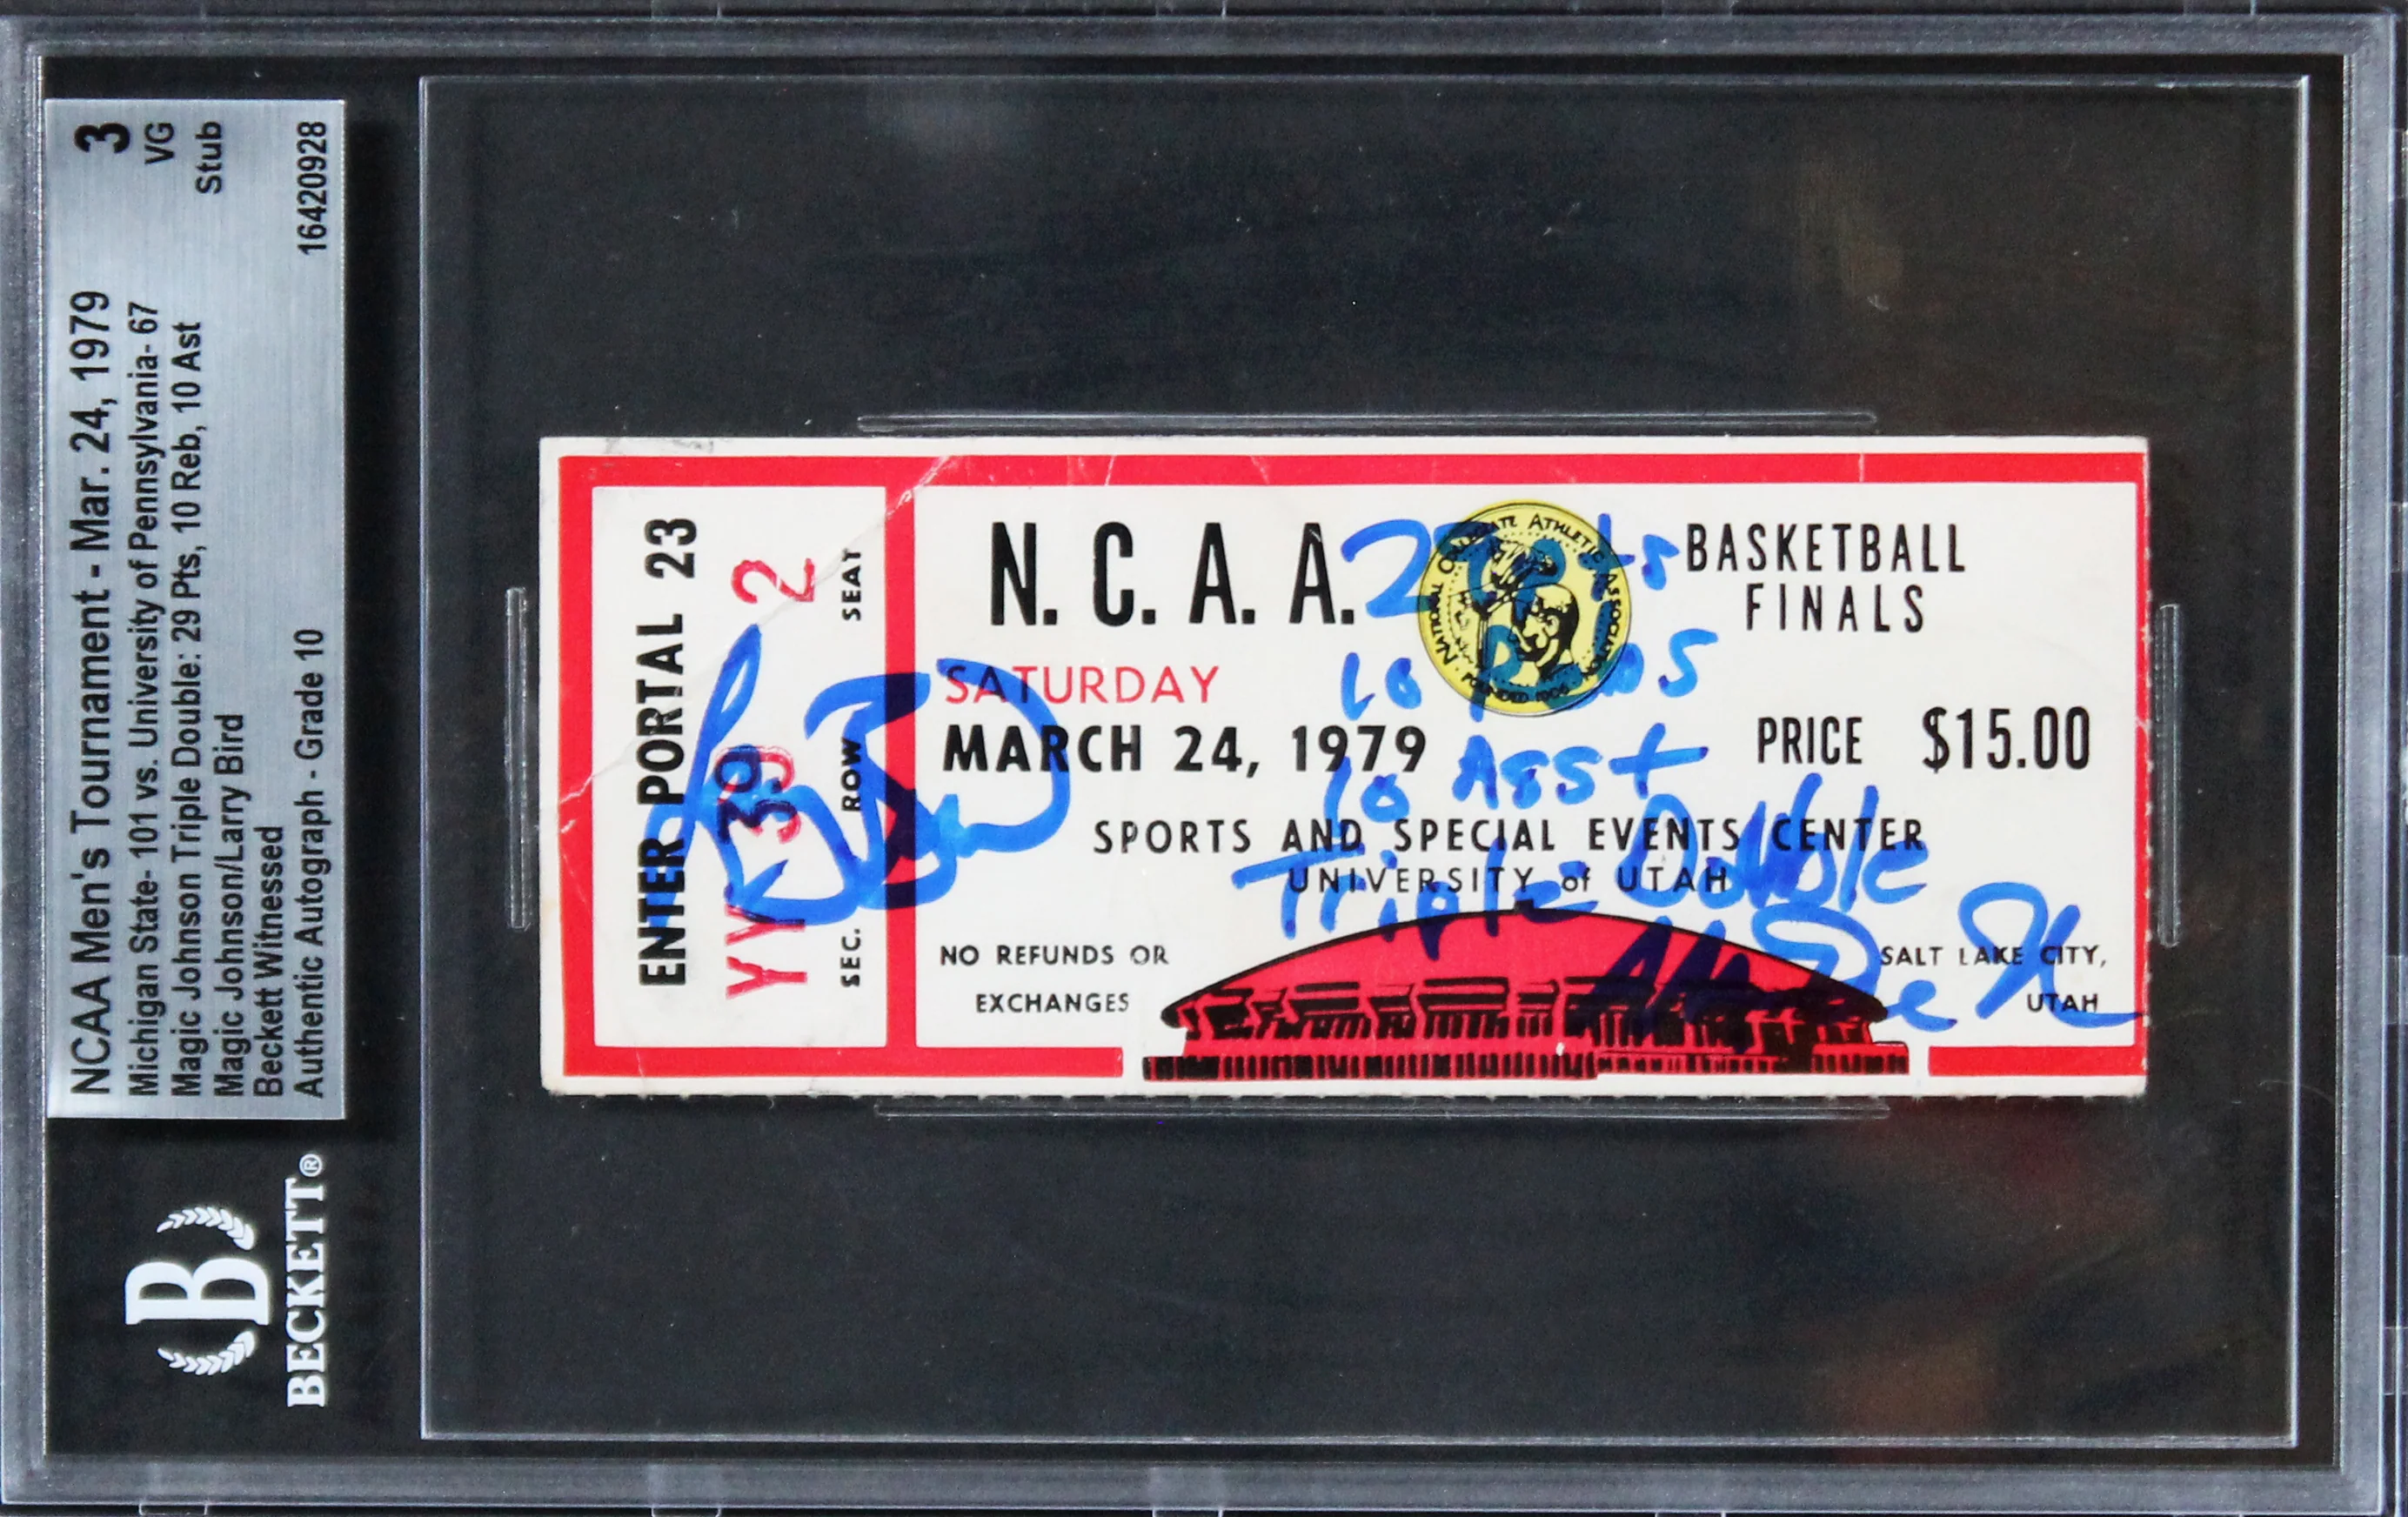 NCAA Men's Tournament - Mar. 24, 1979
Michigan State- 101 vs. University of Pennsylvania- 67
Magic Johnson Triple Double: 29 Pts, 10 Reb, 10 Ast
Magic Johnson/Larry Bird
Beckett Witnessed
Authentic Autograph - Grade 10
3
VG
Stub
16420928
B
BECKETT®
ENTER PORTAL 23
YY 39 2
SEC. ROW SEAT
N. C. A. A.
NATIONAL COLLEGIATE ATHLETIC ASSOCIATION
FOUNDED 1906
BASKETBALL
FINALS
SATURDAY
MARCH 24, 1979
PRICE $15.00
SPORTS AND SPECIAL EVENTS CENTER
UNIVERSITY of UTAH
NO REFUNDS OR
EXCHANGES
SALT LAKE CITY,
UTAH
10
10 Asst
Triple Double